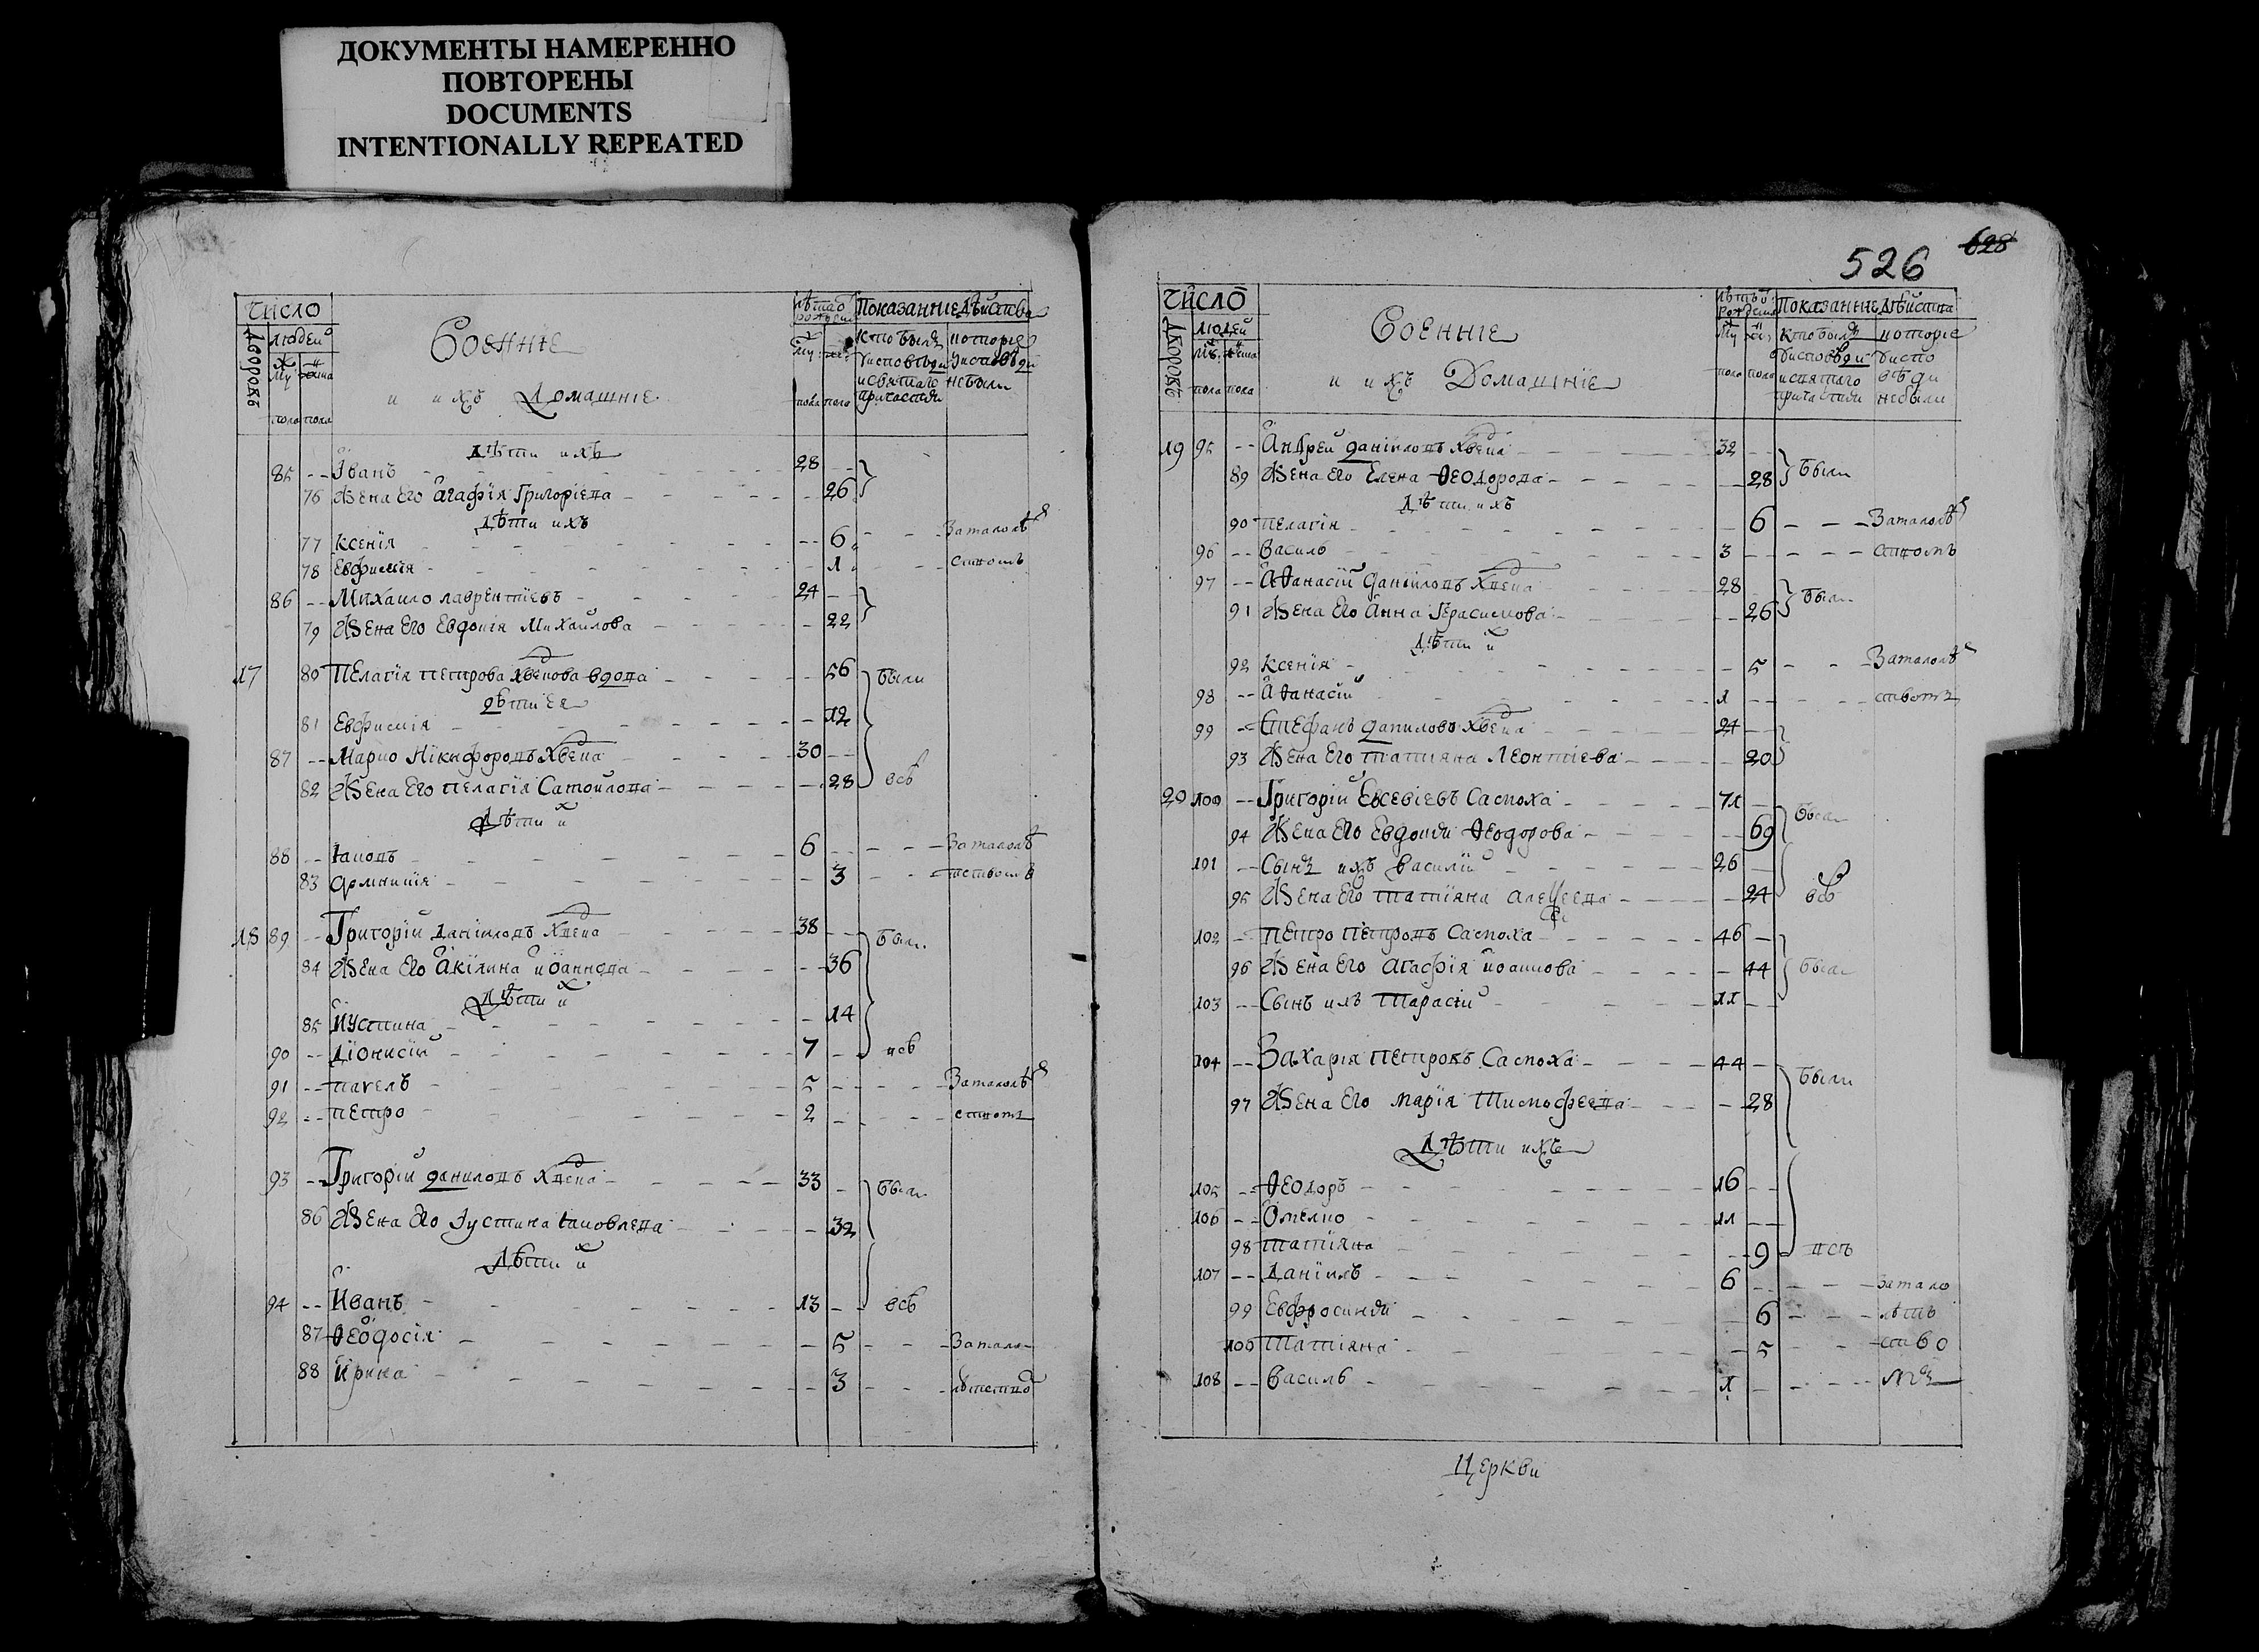 ДОКУМЕНТЫ НАМЕРЕННО
ПОВТОРЕНЫ
DOCUMENTS
INTENTIONALLY REPEATED
число
дворовъ
людей
пола пола
Военніе
и ихъ Домашніе
Показание дѣйства
кто былъ
у исповѣди
и святаго
причастія
которіе
у исповѣди
небыли
Дѣти ихъ
85 -- Іванъ 28 --
76 Жена Его Агафія Григоріева -- 26
Дѣти ихъ
77 Ксенія -- 6 -- За малолѣт
78 Евфимія -- 1 -- ством
86 -- Михаило лаврентіевъ 24 --
79 Жена Его Евдокія Михаилова -- 22
17 80 Пелагія Петрова вдова -- 56 были
дѣти Ея
81 Евфимія -- 12
87 -- Марко Никифоровъ 30 --
82 Жена Его Пелагія Самойлова -- 28 всѣ
Дѣти их
88 -- Іаковъ 6 -- За малолѣ
83 Домникія -- 3 -- тством
18 89 -- Григорій Даніиловъ 38 -- были
84 Жена Его Акилина Иоаннова -- 36
Дѣти их
85 Иустина -- 14
90 -- Діонисій 7 -- всѣ
91 -- Павелъ 5 -- За малолѣт
92 -- Петро 2 -- ством
93 -- Григорій Даниловъ 33 -- были
86 Жена Его Іустина Іаковлева -- 32
Дѣти их
94 -- Иванъ 13 -- всѣ
87 Ѳеодосія -- 5 -- За мало-
88 Ирина -- 3 -- лѣтством
526 628
число
дворовъ
людей
пола пола
Военніе
и ихъ Домашніе
Показание дѣйства
кто былъ
у исповѣди
и святаго
причастія
которіе
у испо
вѣди
небыли
19 95 -- Андрей Даніиловъ 32 --
89 Жена Его Елена Ѳеодорова -- 28 были
Дѣти ихъ
90 Пелагія -- 6 -- За малолѣт
96 -- Василь 3 -- ством
97 -- Аѳанасій Даніиловъ 28 --
91 Жена Его Анна Герасимова -- 26 были
Дѣти их
92 Ксенія -- 5 -- За малолѣт
98 -- Аѳанасій 1 -- ством
99 -- Стефанъ Даниловъ 24 --
93 Жена Его Татіяна Леонтіева -- 20
20 100 -- Григорій Евсевіевъ Сасноха 71 -- были
94 Жена Его Евдокия Ѳеодорова -- 69
101 -- Сынъ ихъ Василій 26 --
95 Жена Его Татіяна Алексеева -- 24 всѣ
102 -- Петро Петровъ Сасноха 46 --
96 Жена Его Агафія Иоаннова -- 44 были
103 -- Сынъ ихъ Тарасій 11 --
104 -- Захарія Петровъ Сасноха 44 -- были
97 Жена Его Марія Тимофеева -- 28
Дѣти ихъ
105 -- Ѳеодоръ 16 --
106 -- Омелко 11 --
98 Татіяна -- 9 всѣ
107 -- Даніилъ 6 -- За мало
99 Евфросинія -- 6 -- лѣт
100 Татіяна -- 5 -- ство
108 -- Василь 1 -- мъ
Церкви